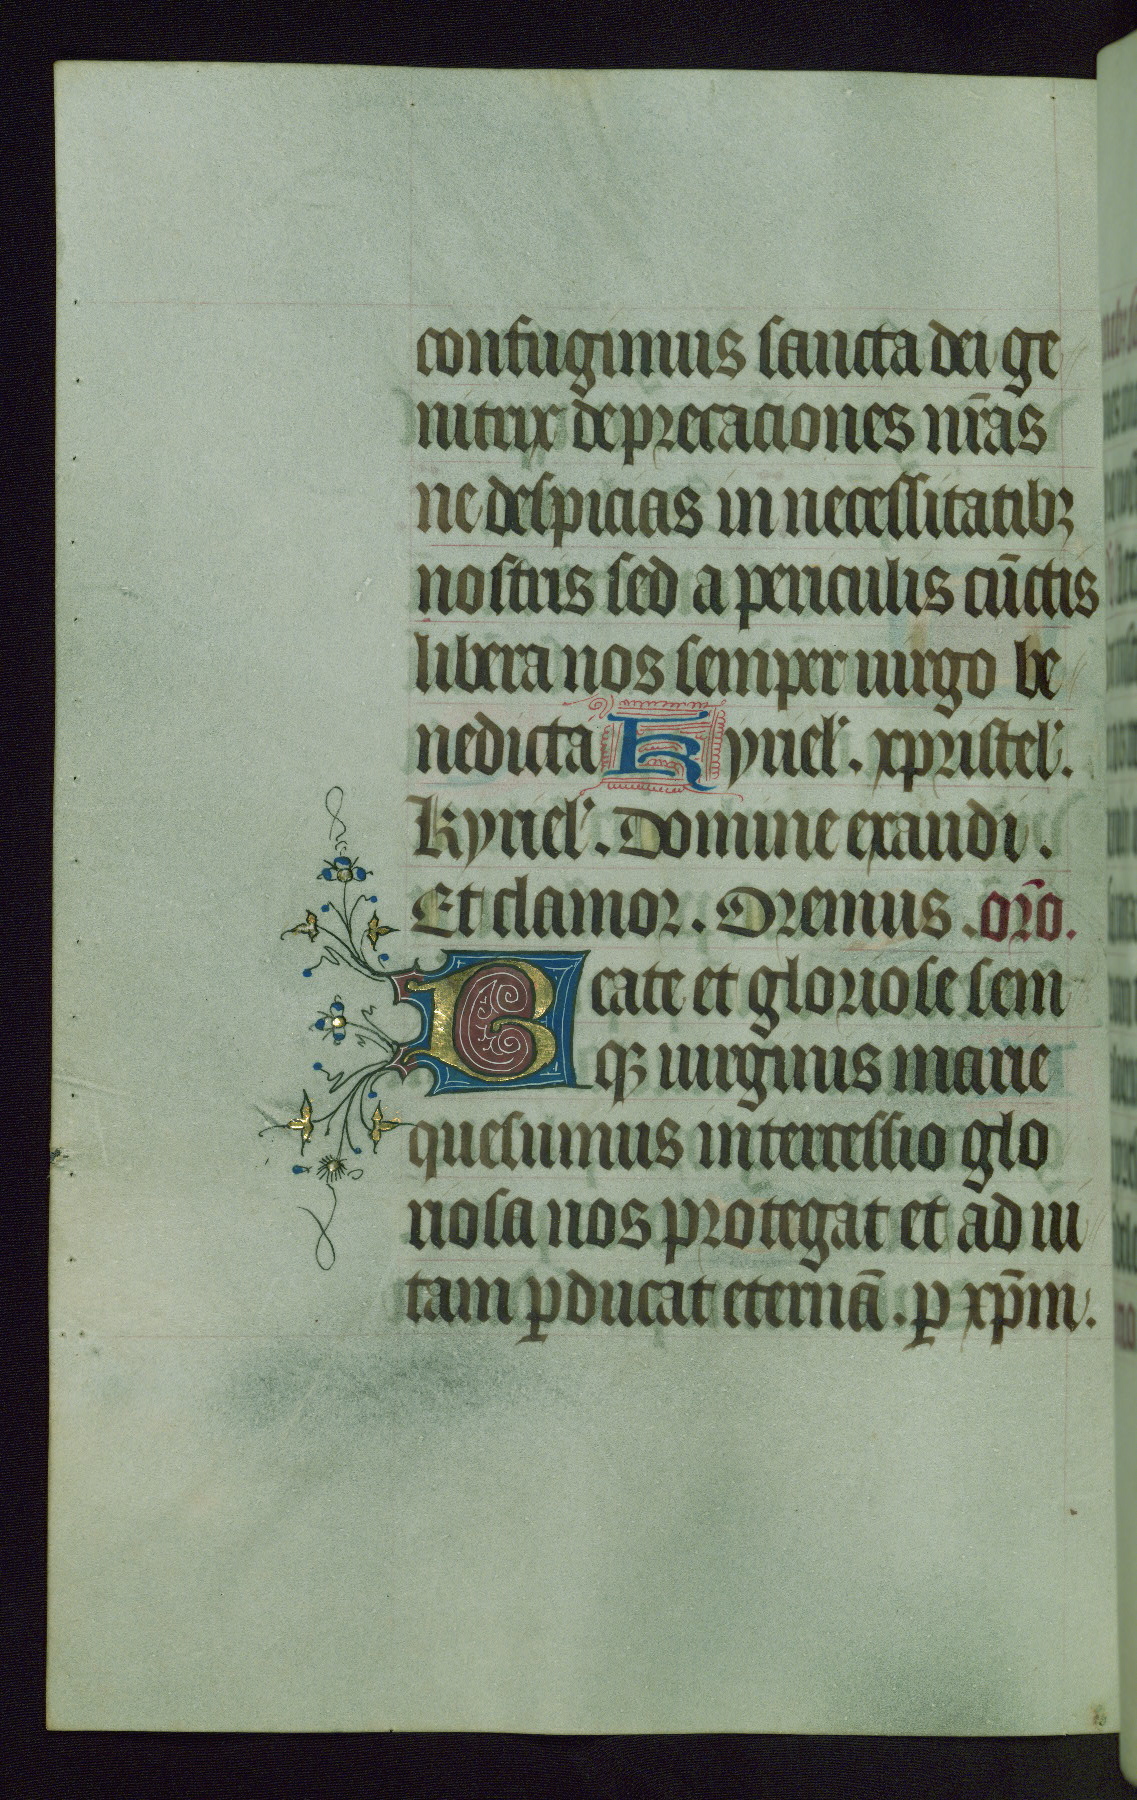 confugimus sancta dei ge
nitrix deprecaciones nr̄as
ne despicias in necessitatibꝫ
nostris sed a periculis cūctis
libera nos semper uirgo be
nedicta Kyriel'. xpristel'.
Kyriel'. Domine exaudi.
Et clamor. Oremus. or̄o.
Beate et gloriose sem
qꝫ uirginis marie
quesumus intercessio glo
riosa nos protegat et ad ui
tam ꝑducat eternā. ꝑ xp̄m.